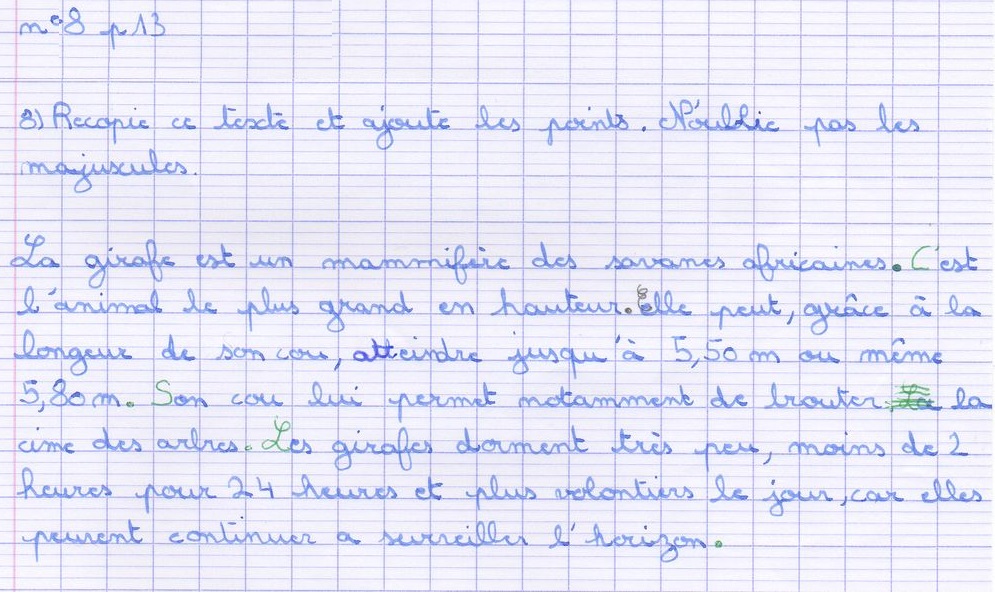 n°8 p 13
8) Recopie ce texte et ajoute les points. N'oublie pas les
majuscules.
La girafe est un mammifère des savanes africaines. C'est
l'animal le plus grand en hauteur. Elle peut, grâce à la
longeur de son cou, atteindre jusqu'à 5,50 m ou même
5,80 m. Son cou lui permet notamment de brouter la
cime des arbres. Les girafes dorment très peu, moins de 2
heures pour 24 heures et plus volontiers le jour, car elles
peuvent continuer a surveiller l'horizon.